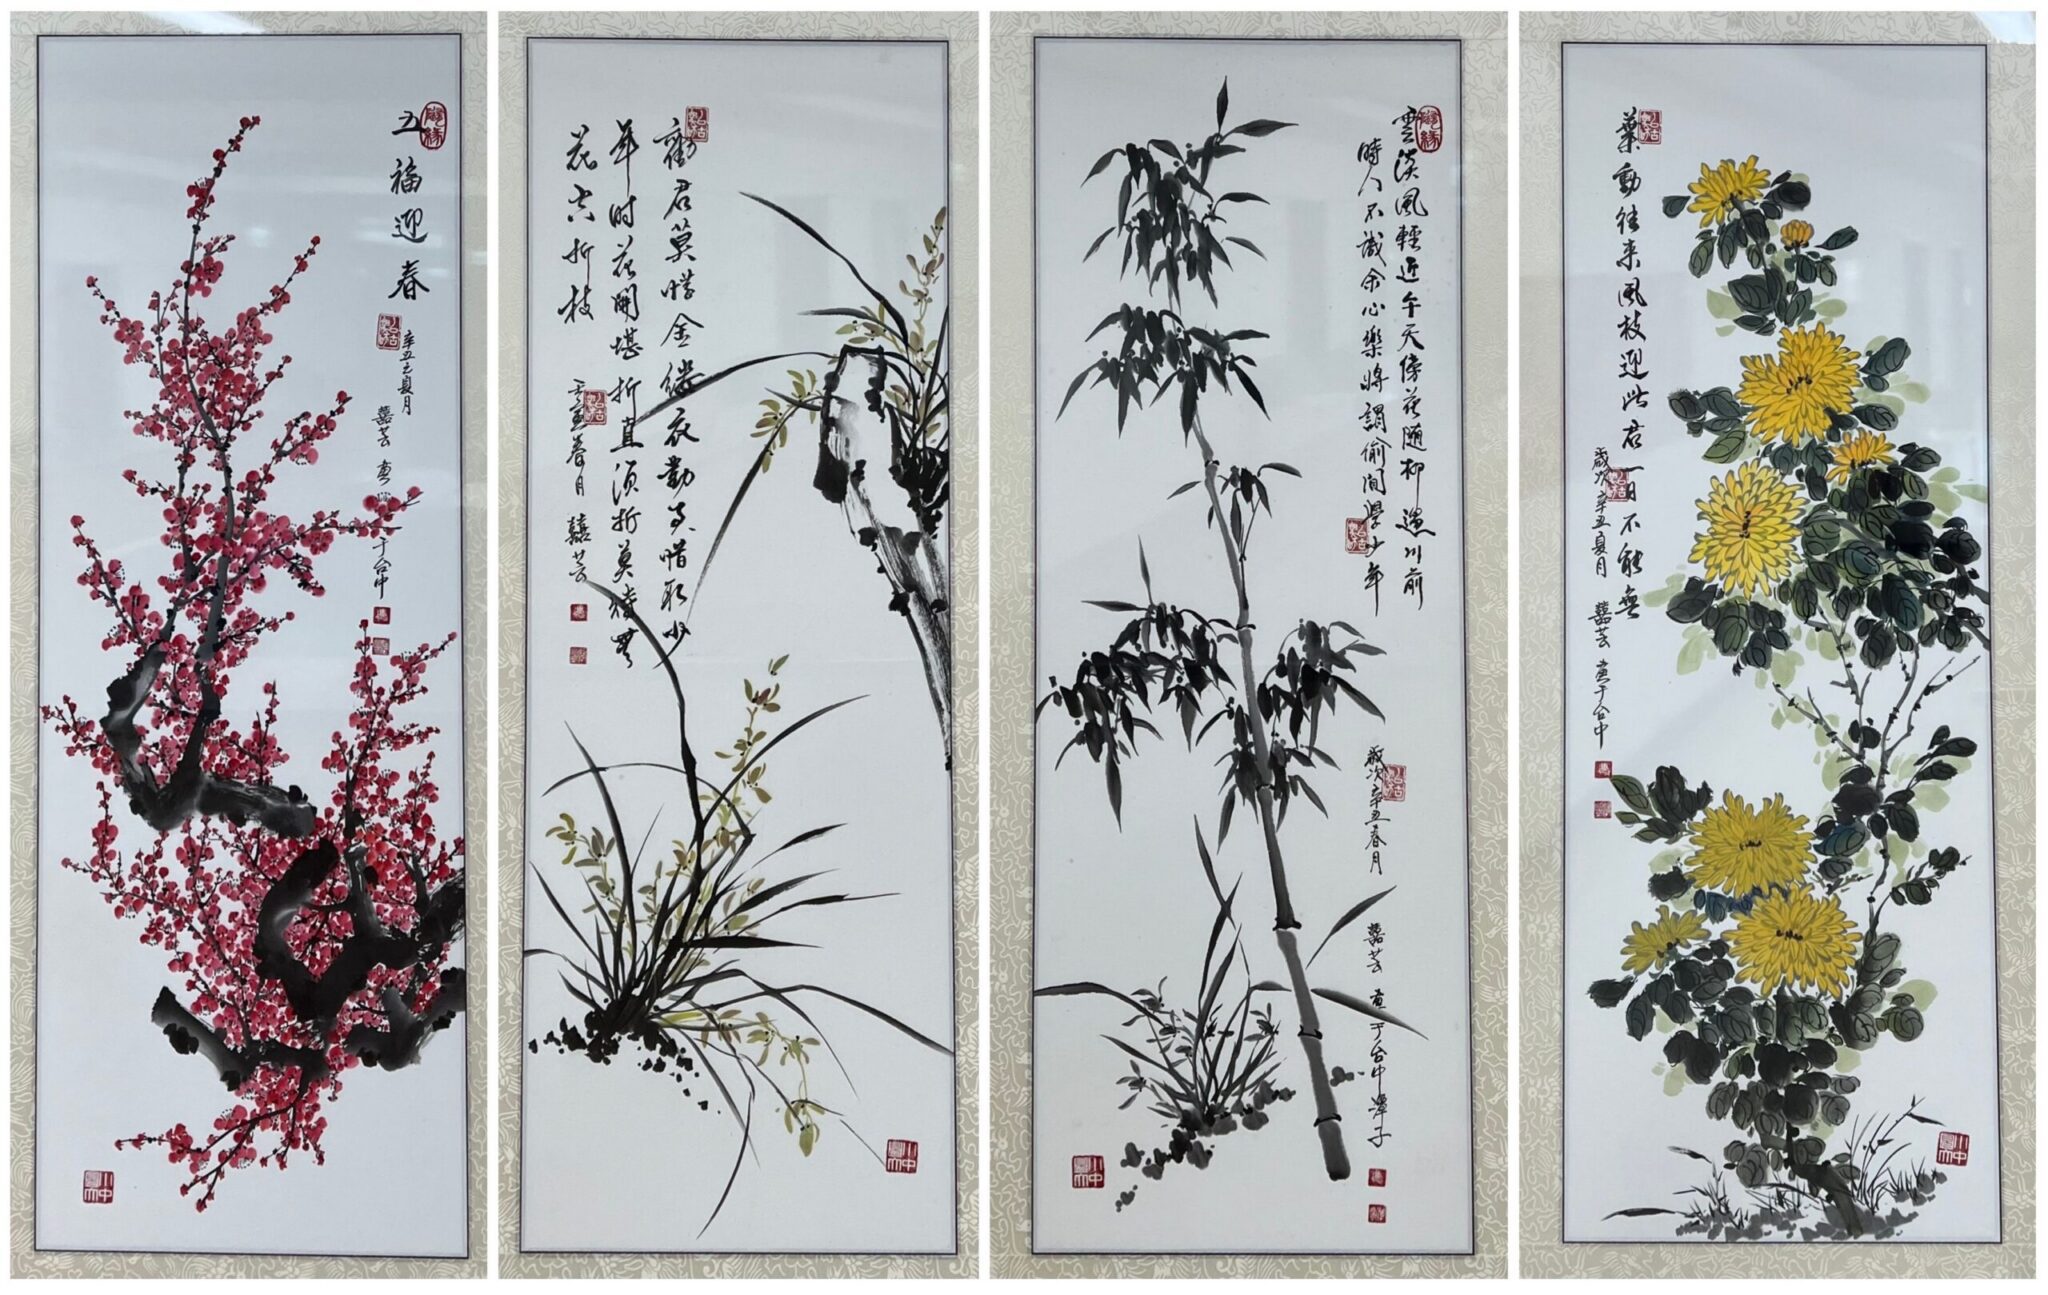 五福迎春
辛丑夏月 囍芸 畫 于台中
勸君莫惜金縷衣勸君惜取少
年時花開堪折直須折莫待無
花空折枝
春月 囍芸
雲淡風輕近午天傍花隨柳過川前
時人不識余心樂將謂偷閒學少年
歲次辛丑春月 囍芸 畫于台中潭子
葉動往來風枝迎此君一日不能無
歲次辛丑夏月 囍芸 畫于台中